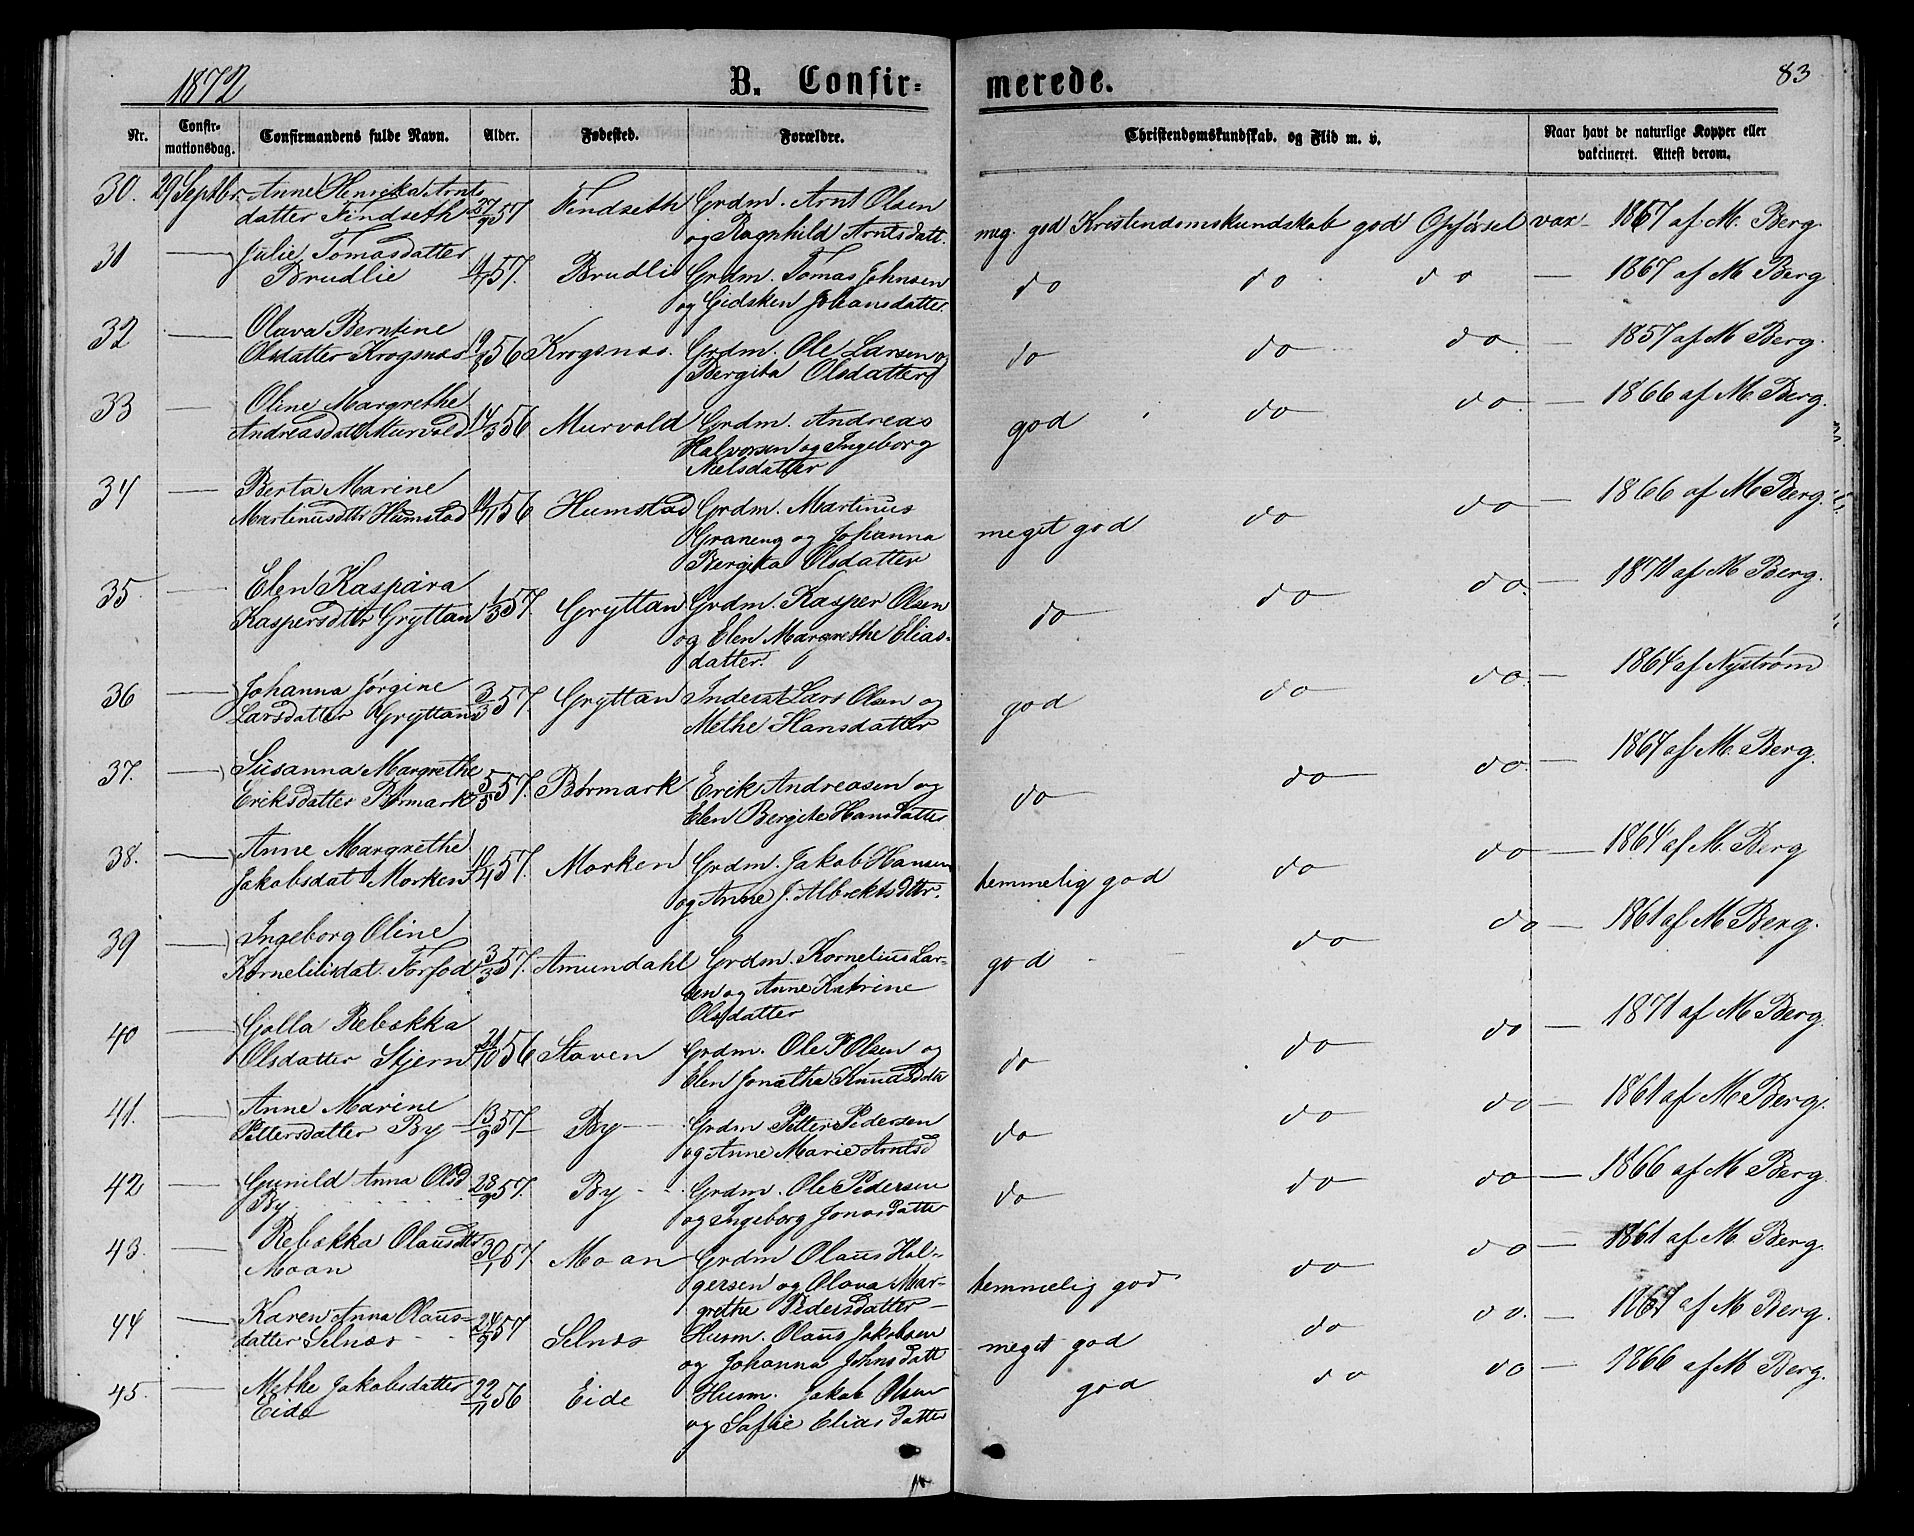 1872
B. Confirmerede.
83
Nr.
Confirmationsdag.
Confirmandens fulde Navn.
Alder.
Fødested.
Forældre.
Christendomskundskab. og Flid m. v.
Naar havt de naturlige Kopper eller
vakcineret. Attest derom.
30. 29 Septbr. Anne Henrika Arnts
datter Findseth 27/9 57 Findseth Grdm. Arnt Olsen
og Ragnhild Arntsdatt. meg. god Kristendomskundskab god Opførsel vax 1867 af M. Berg.
31 Julie Tomasdatter
Brudlie 57. Brudli Grdm. Tomas Johnsen
og Gidsken Johansdatter. do do do — 1867 af M Berg
32 Olava Berntine
Olsdatter Krogsnæs 56 Krogsnæs. Grdm. Ole Larsen og
Bergita Olsdatter do do do 1857 af M Berg.
33 Oline Margrethe
Andreasdatt Murvold 14/3 56 Murvold Grdm. Andreas
Halvorsen og Ingeborg
Nielsdatter god do do. — 1866 af M. Berg.
34 Berta Marine
Martinusdtr Humstad 56 Humstad Grdm. Martinus
Graneng og Johanna
Bergita Olsdatter meget god do do — 1866 af M Berg.
35. Elen Kaspara
Kaspersdtr Gryttan 1/3 57. Gryttan Grdm. Kasper Olsen
og Elen Margrethe Elias-
datter. do do do. — 1871 af M Berg.
36 Johanna Jørgine
Larsdatter Gryttan 3/3 57. Gryttan Inderst Lars Olsen og
Methe Hansdatter god do do. 1864 af Nystrøm
37. Susanna Margrethe
Eriksdatter Børmark 5/5 57. Børmark Erik Andreasen og
Elen Bergite Hansdatter do do do. 1867 af M. Berg.
38. Anne Margrethe
Jakobsdat Morken 57. Morken Grdm. Jakob Hansen
og Anne J. Albrektsdtr. temmelig god do do — 1864 af M. Berg
39 Ingeborg Oline
Korneliusdat. Forfod 3/3 57. Amundahl Grdm. Kornelius Lar-
sen og Anne Katrine
Olsdatter god do do — 1861 af M Berg.
40 Golla Rebekka
Olsdatter Stjern 21/10 56 Staven Grdm. Ole P Olsen og
Elen Jonetha Knudsdatr do do do — 1871 af M Berg.
41. Anne Marine
Pettersdatter By 13/9 57 By Grdm Petter Pedersen
og Anne Marie Arntsd do do do — 1861 af M Berg.
42 Gunild Anna Olsd
By 28/9 57. By Grdm. Ole Pedersen
og Ingeborg Jonasdatter do do do — 1866 af M Berg.
43. Rebekka Olausdtr
Moan 30/1 57. Moan Grdm Olaus Hol-
gersen og Olava Mar-
grethe Pedersdatter temmelig god do do — 1861 af M. Berg.
44 Karen Anna Olaus-
datter Selnæs 24/9 57 Selnæs Husm. Olaus Jakobsen
og Johanna Johnsdatt meget god do do. — 1867 af M Berg.
45. Methe Jakobsdatter
Eide 22/11 56 Eide Husm. Jakob Olsen
og Safie Eliasdatter god do do — 1866 af M Berg.